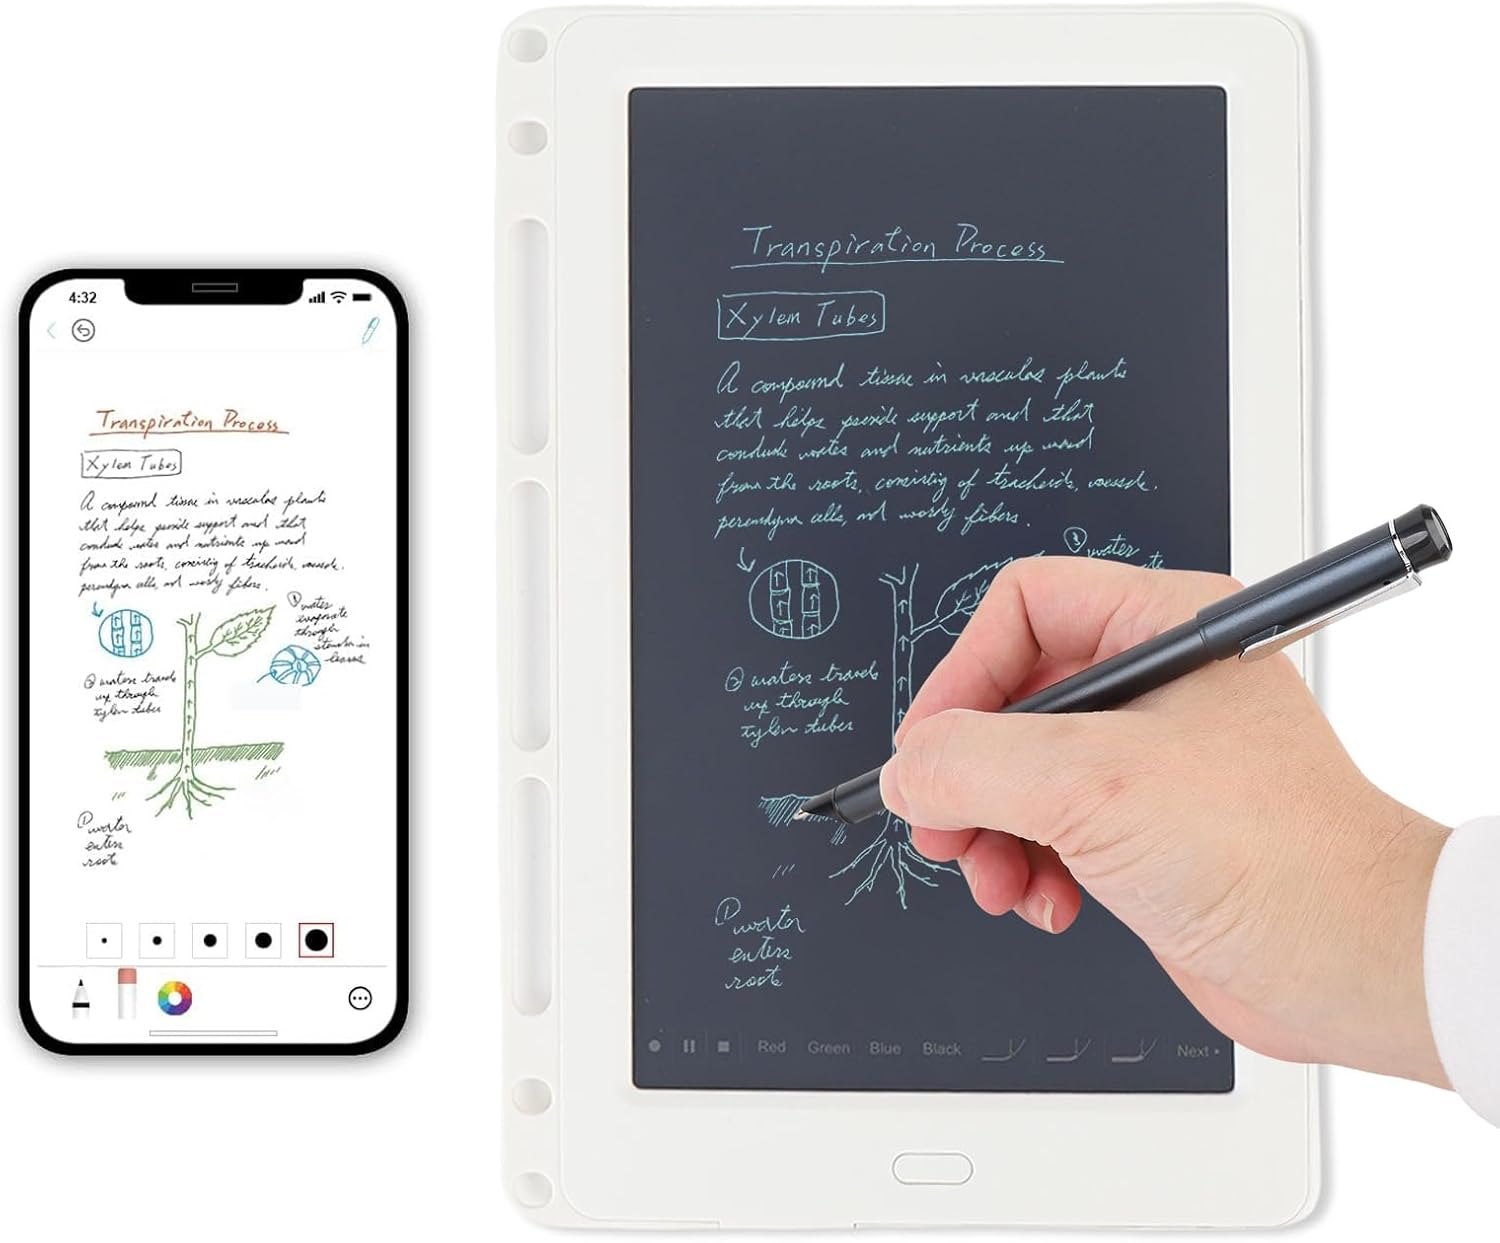 4:32
Transpiration Process
Xylem Tubes
A compound tissue in vascular plants
that helps provide support and that
conducts water and nutrients up ward
from the roots, consisting of tracheids, vessels.
parenchyma cells, and woody fibers.
① water
evaporate
through
stomata in
leaves
② waters travels
up through
xylem tubes
① water
enters
roots
Transpiration Process
Xylem Tubes
A compound tissue in vascular plants
that helps provide support and that
conducts water and nutrients up ward
from the roots, consisting of tracheids, vessels.
parenchyma cells, and woody fibers.
③ water
② waters travels
up through
xylem tubes
① water
enters
roots
Red Green Blue Black Next